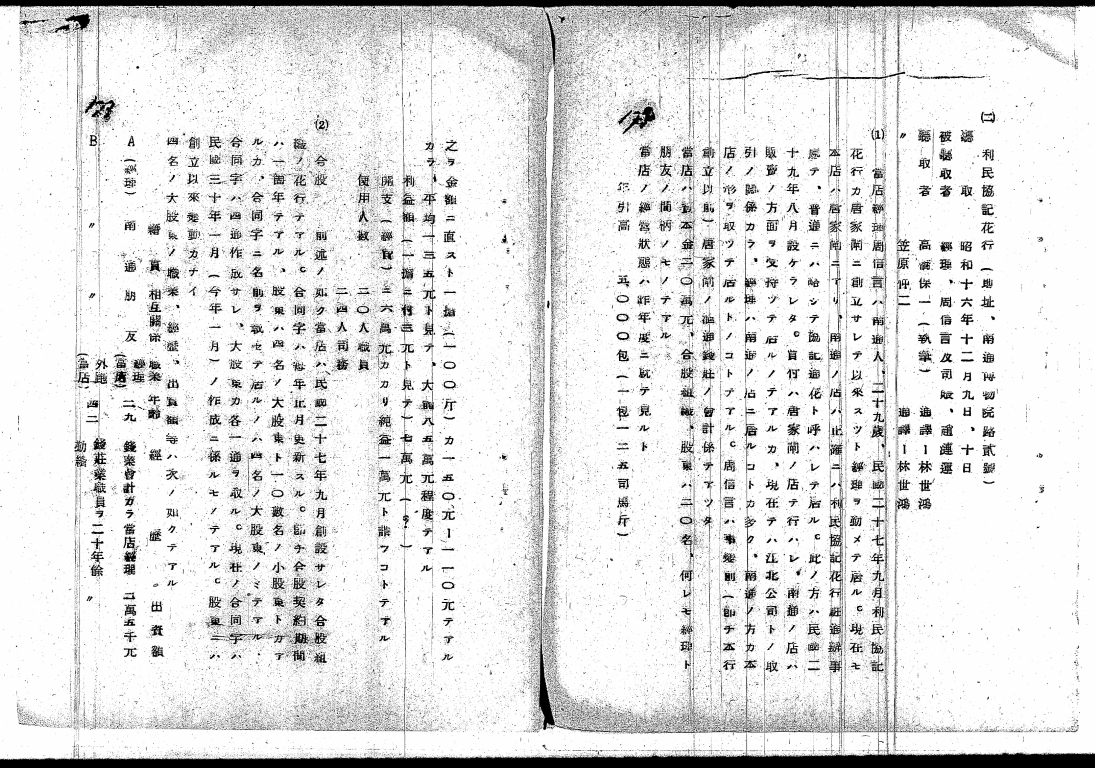 (二) 利民協記花行(地址、南通博物院路貳號)
聽取 昭和十六年十二月九日、十日
被聽取者 經理、周信言及司賬、翁連運
聽取者 高瀬保一(執筆) 通譯ー林世鴻
〃 笠原仲二 通譯ー林世鴻
(1) 當店經理周信言ハ南通人、二十九歳、民國二十七年九月利民協記
花行カ唐家閘ニ創立サレテ以來スツト經理ヲ勤メテ居ル。現在モ
本店ハ唐家閘ニアリ、南通ノ店ハ正確ニハ利民協記花行駐通辦事
處テ、普通ニハ略シテ協記通花ト呼ハレテ居ル。此ノ方ハ民國二
十九年八月設ケラレタ。買付ハ唐家閘ノ店テ行ハレ、南通ノ店ハ
販賣ノ方面ヲ受持ツテ居ルノテアルカ、現在テハ江北公司トノ取
引ノ關係カラ、經理ハ南通ノ店ニ居ルコトカ多ク、南通ノ方カ本
店ノ形ヲ取ツテ居ルトノコトテアル。周信言ハ事變前(即チ本行
創立以前)唐家閘ノ滙通錢莊ノ會計係テアツタ
當店ハ資本金二〇萬元、合股組織、股東ハ二〇名、何レモ經理ト
朋友ノ間柄ノモノテアル
當店ノ經營狀態ハ昨年度ニ就テ見ルト
引高 五〇〇〇包(一包一二五司馬斤)
之ヲ金額ニ直スト一擔(一〇〇斤)カ一五〇元ー一一〇元テアル
カラ、平均一三五元ト見テ、大體八五萬元程度テアル
利益額(一擔ニ付三元ト見テ)七萬元(?)
開支(經費)二六萬元カカリ純益一萬元ト謂フコトテアル
使用人數 二〇人職員
二四人司務
(2) 合股 前述ノ如ク當店ハ民國二十七年九月創設サレタ合股組
織ノ花行テアル。合同字ハ每年正月更新スル。卽チ合股契約期間
ハ一箇年テアル、股東ハ四名ノ大股東ト一〇數名ノ小股東トカア
ルカ、合同字ニ名前ヲ載セテ居ルノハ四名ノ大股東ノミテアル・
合同字ハ四通作成サレ、大股東カ各一通ヲ取ル。現在ノ合同字ハ
民國三十年一月(今年一月)ノ作成ニ係ルモノテアル。股東ニハ
創立以來變動カナイ
四名ノ大股東ノ職業、經歷、出資額等ハ次ノ如クテアル
籍貫 相互關係 職業 年齡 經歷 出資額
A(經理) 南通 朋友 經理(當店) 二九 錢業會計カラ當店經理 二萬五千元
B 〃 〃 外跑(當店) 四二 錢莊業職員ヲ二十年餘勤續 〃